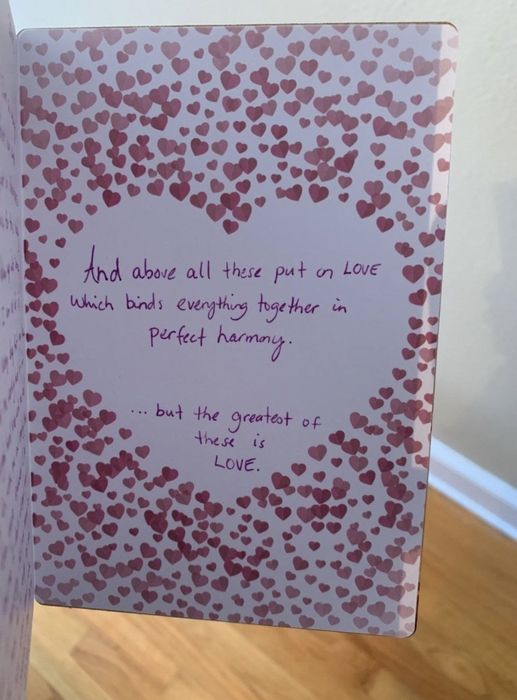 And above all these put on LOVE
which binds everything together in
perfect harmony.
... but the greatest of
these is
LOVE.